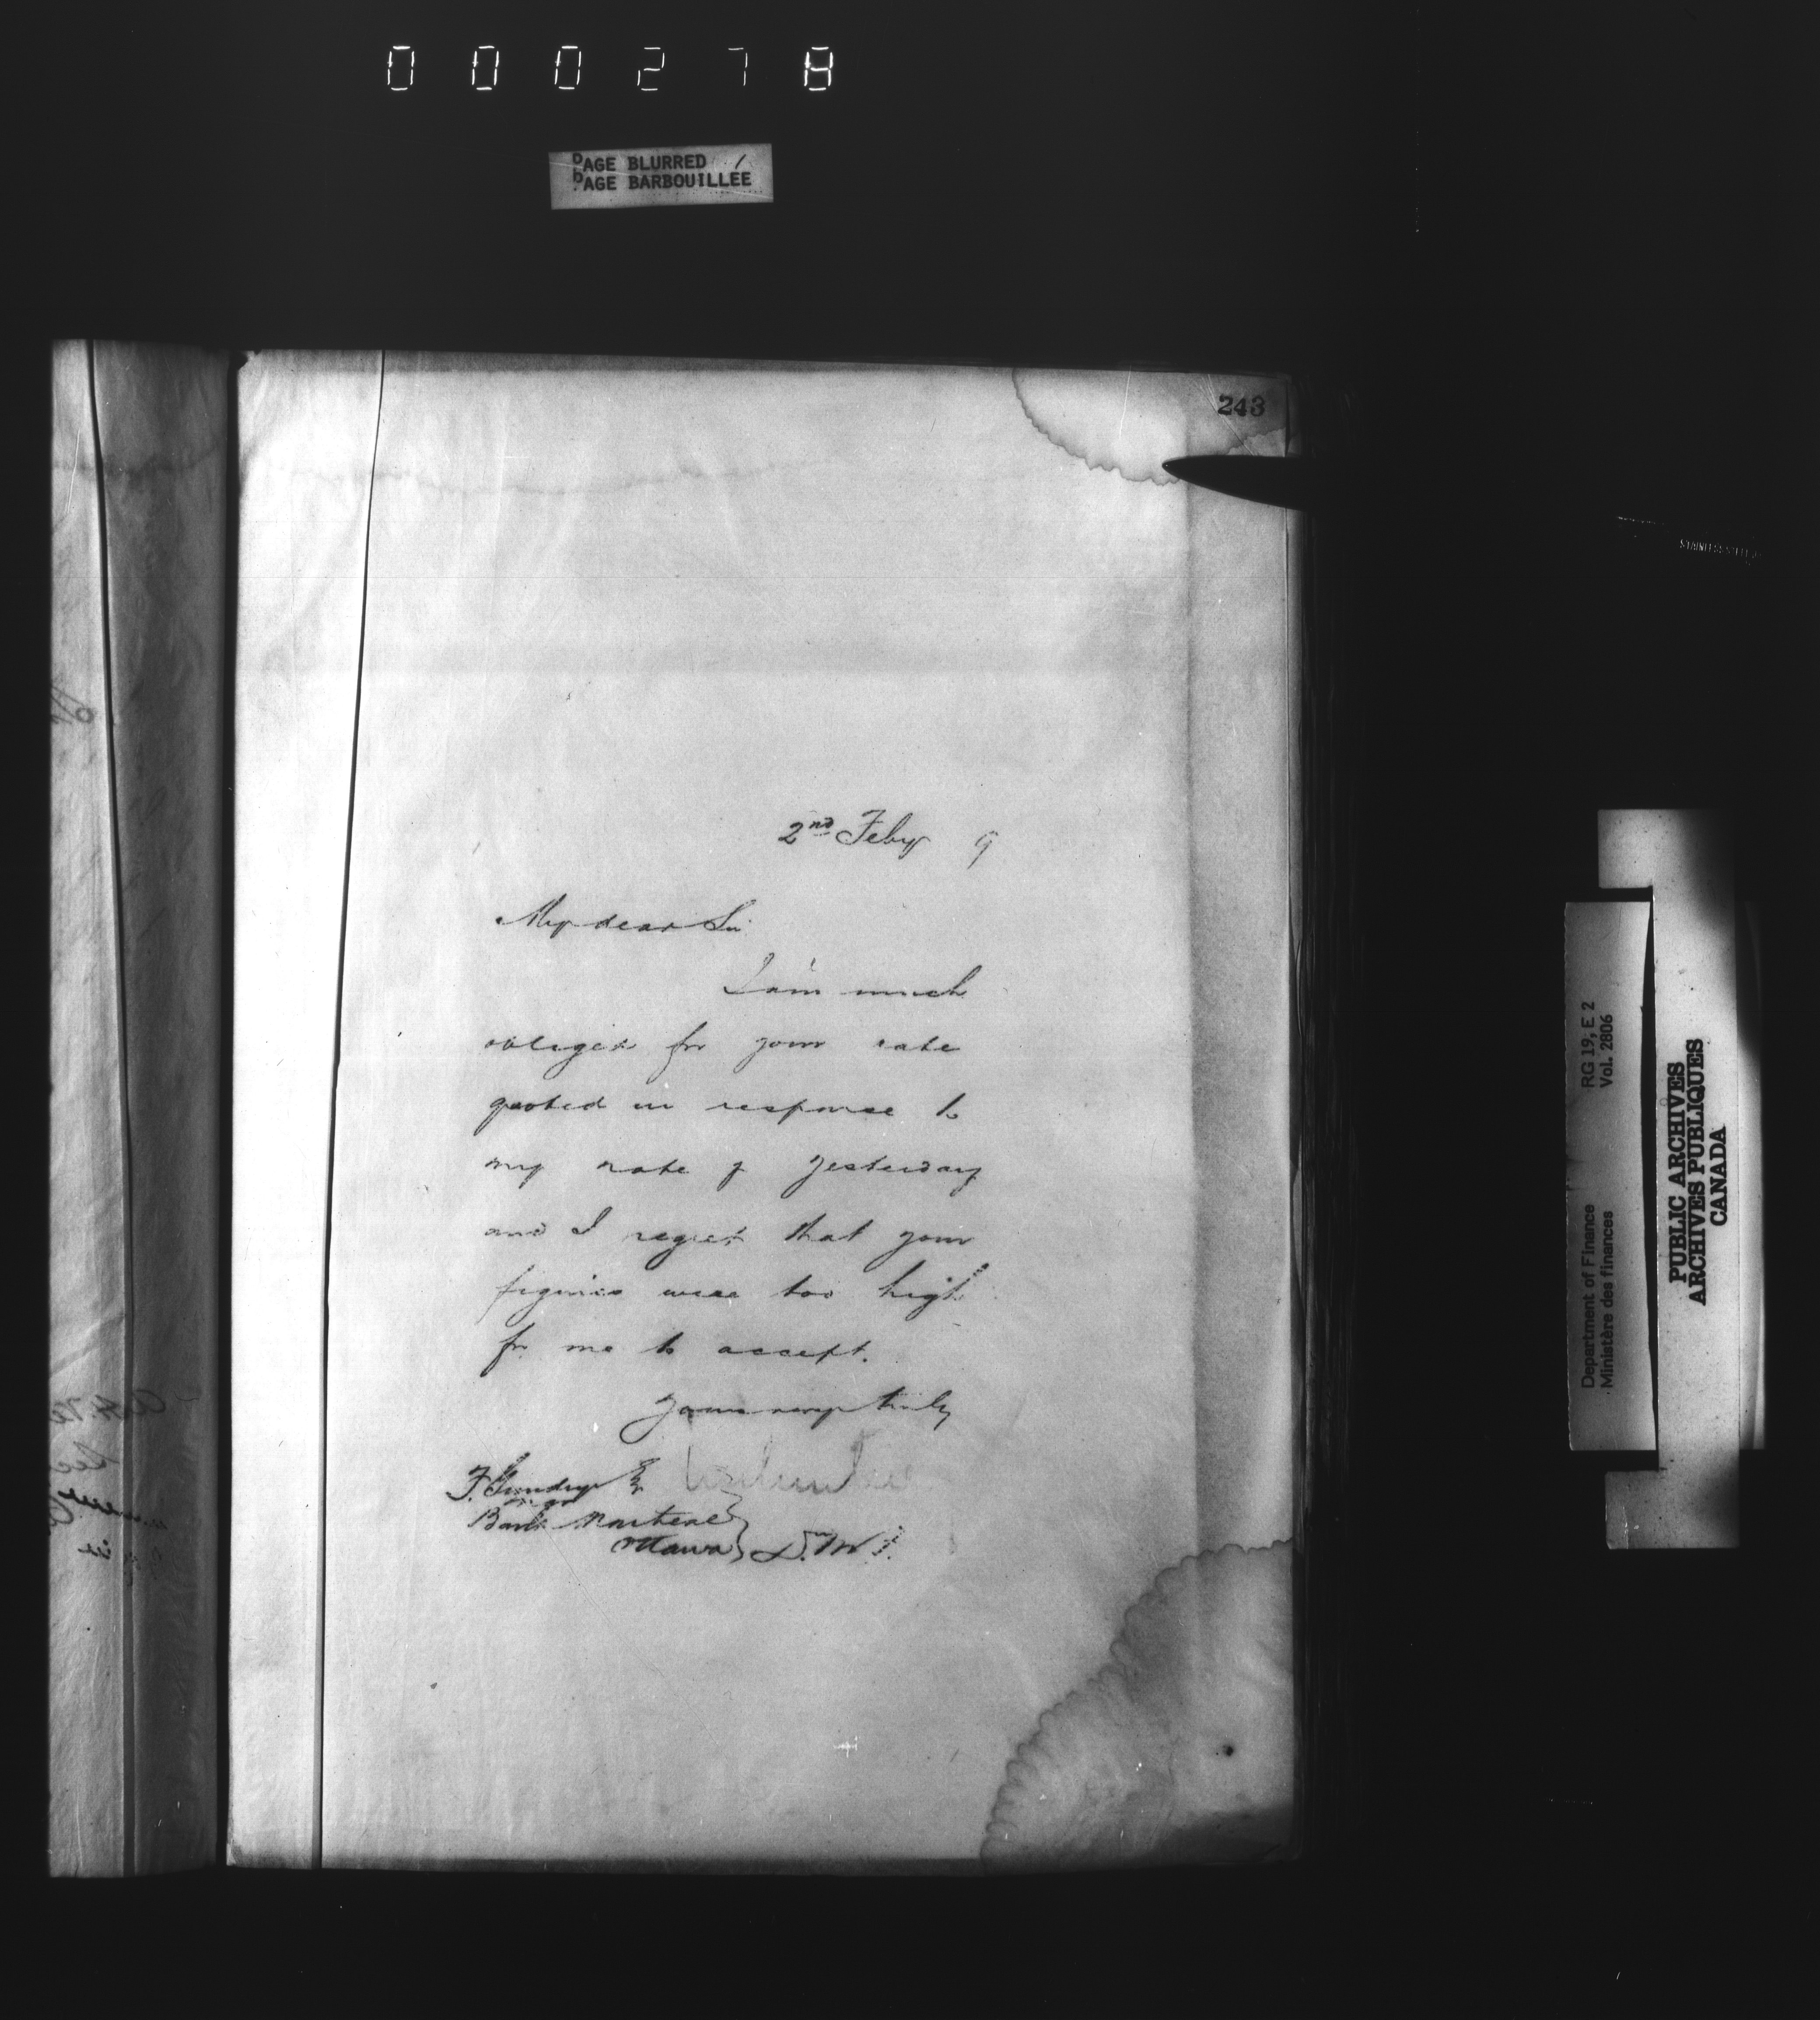 000278
PAGE BLURRED
PAGE BARBOUILLÉE
243
2nd Feby 9
My dear Sir
I am much
obliged for your rate
quoted in response to
my note of yesterday
and I regret that your
figures were too high
for me to accept.
Yours very truly
F. Gundry Esq
Bank Montreal
Ottawa D. M. F.
RG 19, E 2
Vol. 2806
Department of Finance
Ministère des finances
PUBLIC ARCHIVES
ARCHIVES PUBLIQUES
CANADA
STAINLESS STEEL